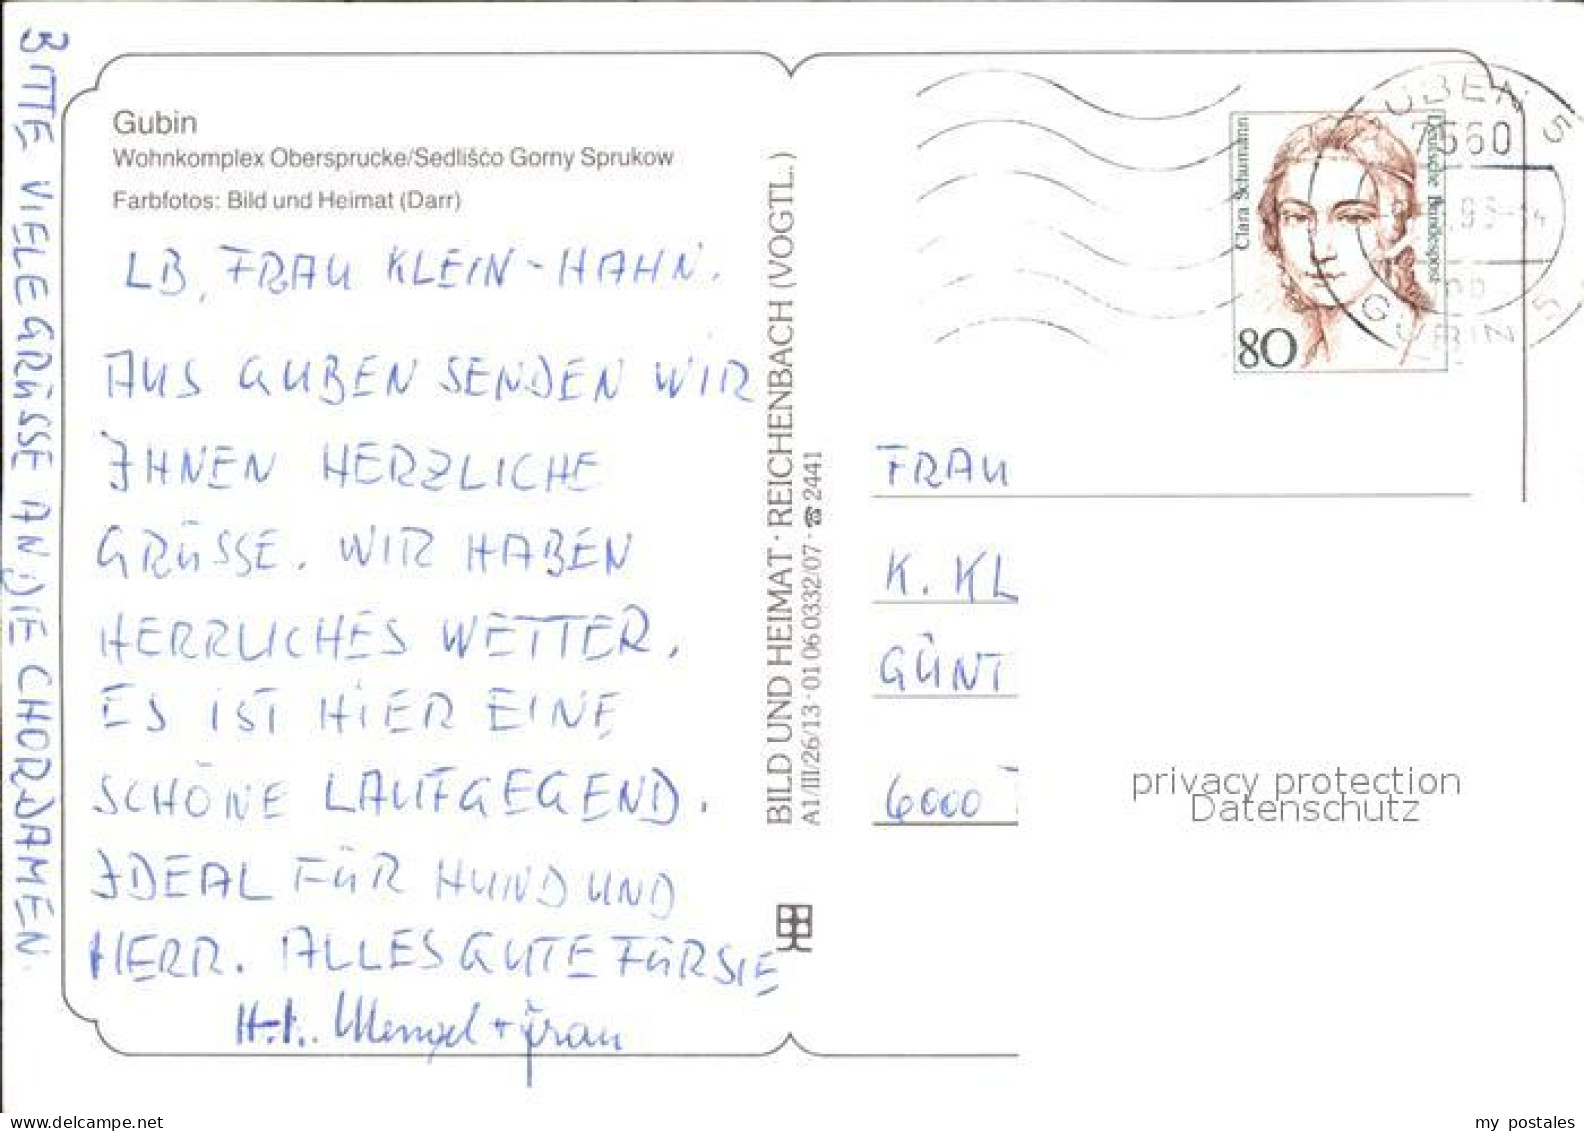 Gubin
Wohnkomplex Obersprucke/Sedlišćo Gorny Sprukow
Farbfotos: Bild und Heimat (Darr)
LB. FRAU KLEIN-HAHN.
AUS GUBEN SENDEN WIR
IHNEN HERZLICHE
GRÜSSE. WIR HABEN
HERRLICHES WETTER.
ES IST HIER EINE
SCHÖNE LAUFGEGEND.
IDEAL FÜR HUND UND
HERR. ALLES GUTE FÜR SIE
+ Frau
BITTE VIELE GRÜSSE AN DIE CHORDAMEN.
BILD UND HEIMAT · REICHENBACH (VOGTL.)
A1/III/26/13 · 01 06 0332/07 · ☎ 2441
Clara Schumann
Deutsche Bundespost
80
GUBEN 5
7560
GUBIN 5
FRAU
K. KL
GÜNT
6000
privacy protection
Datenschutz
www.delcampe.net
my_postales